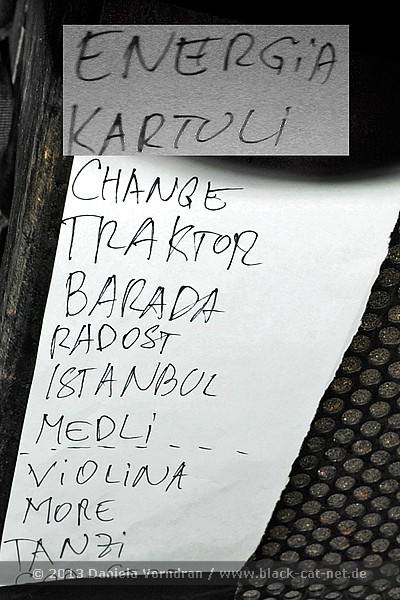 ENERGiA
KARTULi
CHANGE
TRAKTOR
BARADA
RADOST
ISTANBUL
MEDLi
ViOLiNA
MORE
TANZi
© 2013 Daniela Vorndran / www.black-cat-net.de